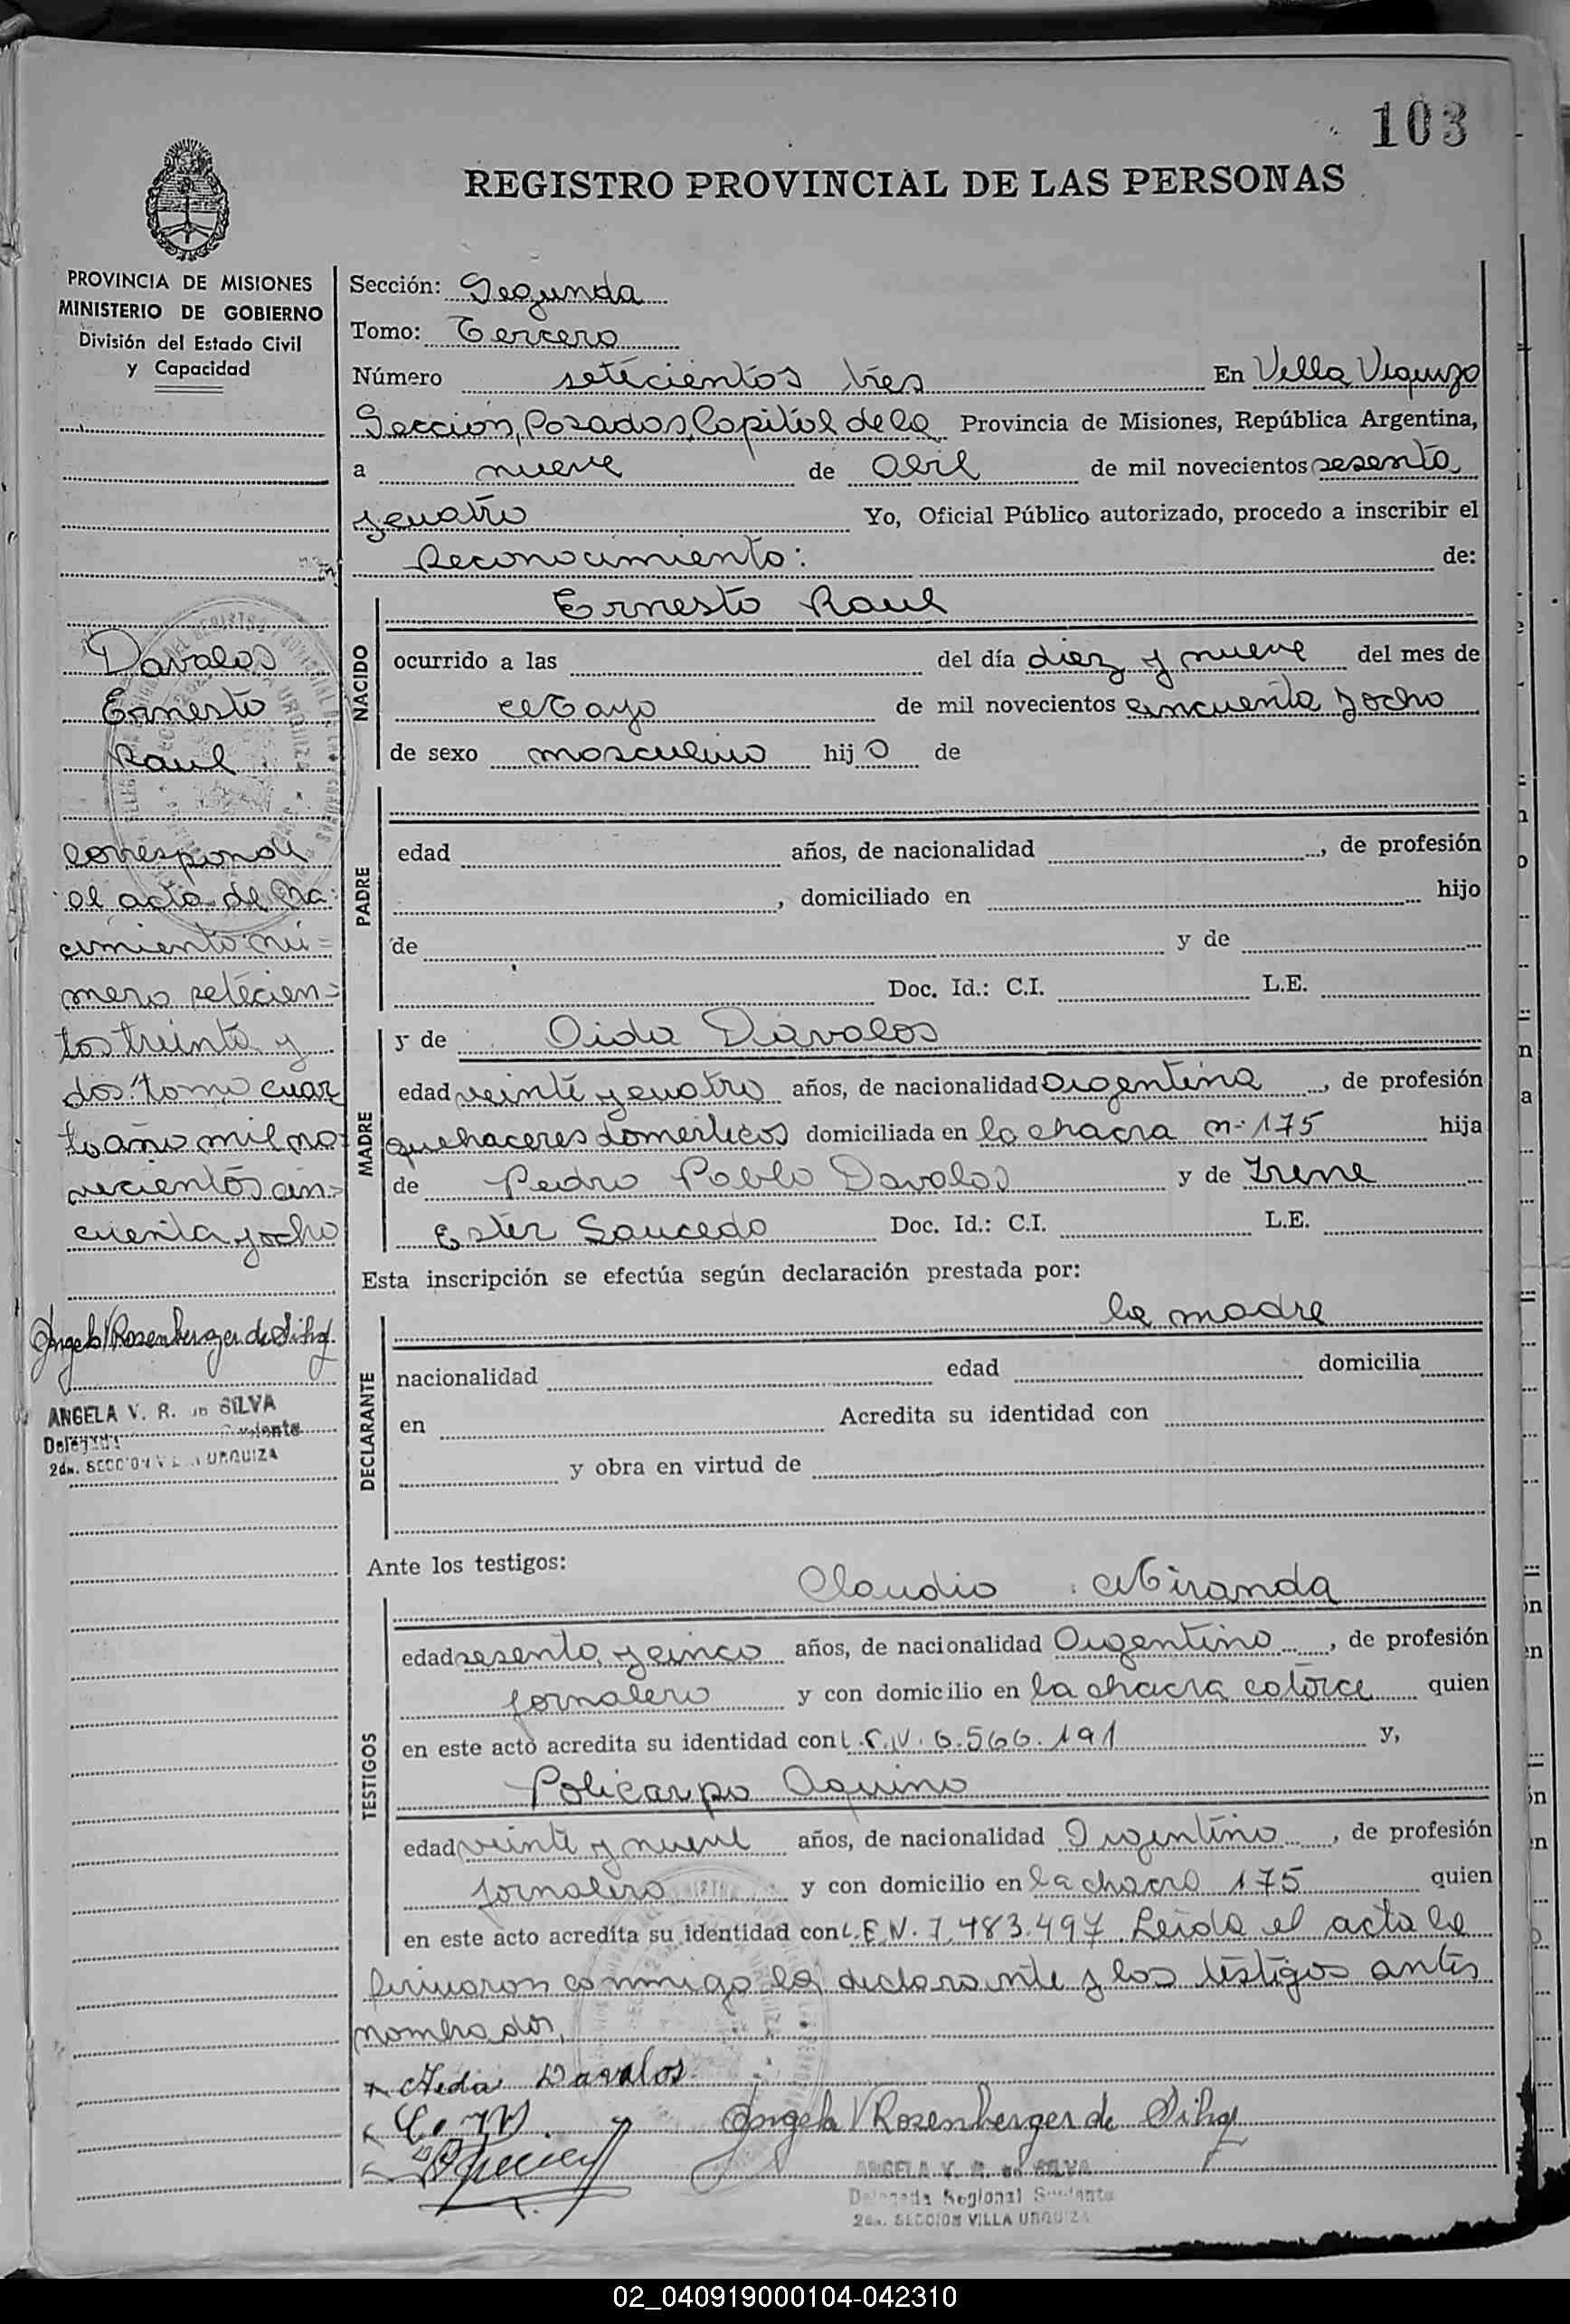 103
REGISTRO PROVINCIAL DE LAS PERSONAS
PROVINCIA DE MISIONES
MINISTERIO DE GOBIERNO
División del Estado Civil
y Capacidad
Davalos
Ernesto
Raul
corresponde
al acta de Na
cimiento nú=
mero setecien=
tos treinta y
dos tomo cuar
to año mil no=
vecientos cin=
cuenta y ocho
Angela V Rosenberger de Silva
ANGELA V. R. de SILVA
2da. SECCION VILLA URQUIZA
Sección: Segunda
Tomo: Tercero
Número setecientos tres En Villa Urquiza
Sección, Posadas, Capital de la Provincia de Misiones, República Argentina,
a nueve de Abril de mil novecientos sesenta
y cuatro Yo, Oficial Público autorizado, procedo a inscribir el
Reconocimiento: de:
NACIDO
Ernesto Raul
ocurrido a las del día diez y nueve del mes de
Mayo de mil novecientos cincuenta y ocho
de sexo masculino hijo de
PADRE
edad años, de nacionalidad , de profesión
, domiciliado en hijo
de y de
Doc. Id.: C.I. L.E.
MADRE
y de Aida Davalos
edad veinte y cuatro años, de nacionalidad Argentina , de profesión
quehaceres domesticos domiciliada en la chacra n· 175 hija
de Pedro Pablo Davalos y de Irene
Ester Saucedo Doc. Id.: C.I. L.E.
Esta inscripción se efectúa según declaración prestada por:
DECLARANTE
la madre
nacionalidad edad domicilia
en Acredita su identidad con
y obra en virtud de
Ante los testigos:
TESTIGOS
Claudio Miranda
edad sesenta y cinco años, de nacionalidad Argentino , de profesión
jornalero y con domicilio en la chacra catorce quien
en este acto acredita su identidad con 6.566.191 y,
Policarpo Aquino
edad veinte y nueve años, de nacionalidad Argentino , de profesión
jornalero y con domicilio en la chacra 175 quien
en este acto acredita su identidad con L.E.N. 7.483.497 Leida el acta la
firmaron conmigo la declarante y los testigos antes
nombrados,
x Aeda Davalos
Angela V Rosenberger de Silva
ANGELA V. R. de SILVA
Delegada Regional Suplente
2da. SECCION VILLA URQUIZA
02_040919000104-042310